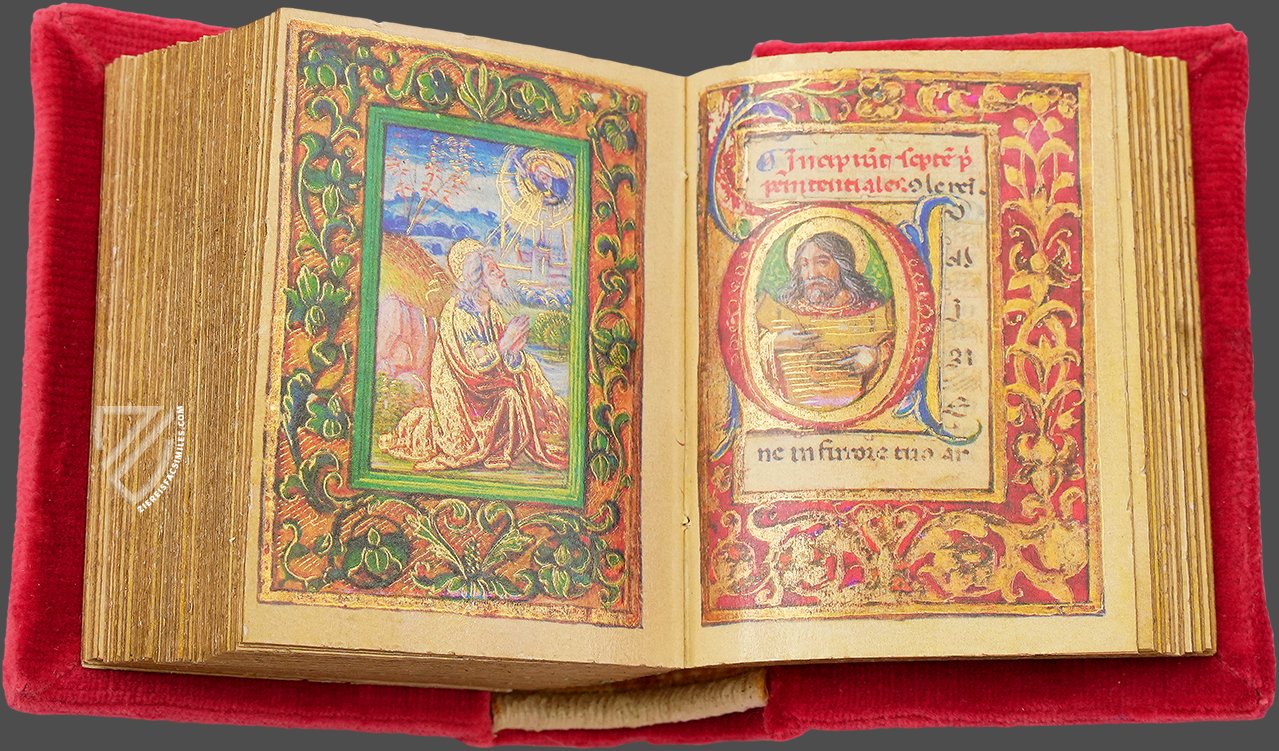 Incipiūt septē p̄
penitentiales
O
M
I
N
E
ne in furore tuo ar
ZIEREISFACSIMILES.COM